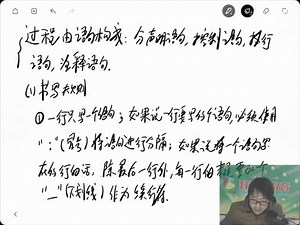 过程由语句构成：分声明语句，控制语句，执行
语句，注释语句.
(1) 书写规则
① 一行只写一个语句；如果说一行要写多个语句，必须使用
":"(冒号)将语句进行分隔；如果说将一个语句写
在多行的话，除最后一行外，每一行的都要加个
"_"(下划线)作为续行符.